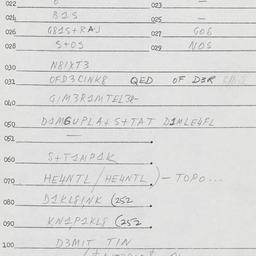 022 0 023 —
024 B1S 025 —
026 G81S+RAJ 027 GO6
028 S+OS 029 NOS
030 N81XT3
031 OFD3CINK8 QED OF D3R
040 GIM3R1MTEL34
050 D1MGUPLA+S+TAT D1MLE4FL
051 —
060 S+T1MP1K
070 HE4NTL / HE4NTL ) — TOPO...
080 D1KL8INK (252
090 KN1P1KL8 (252
100 D3MIT TIN